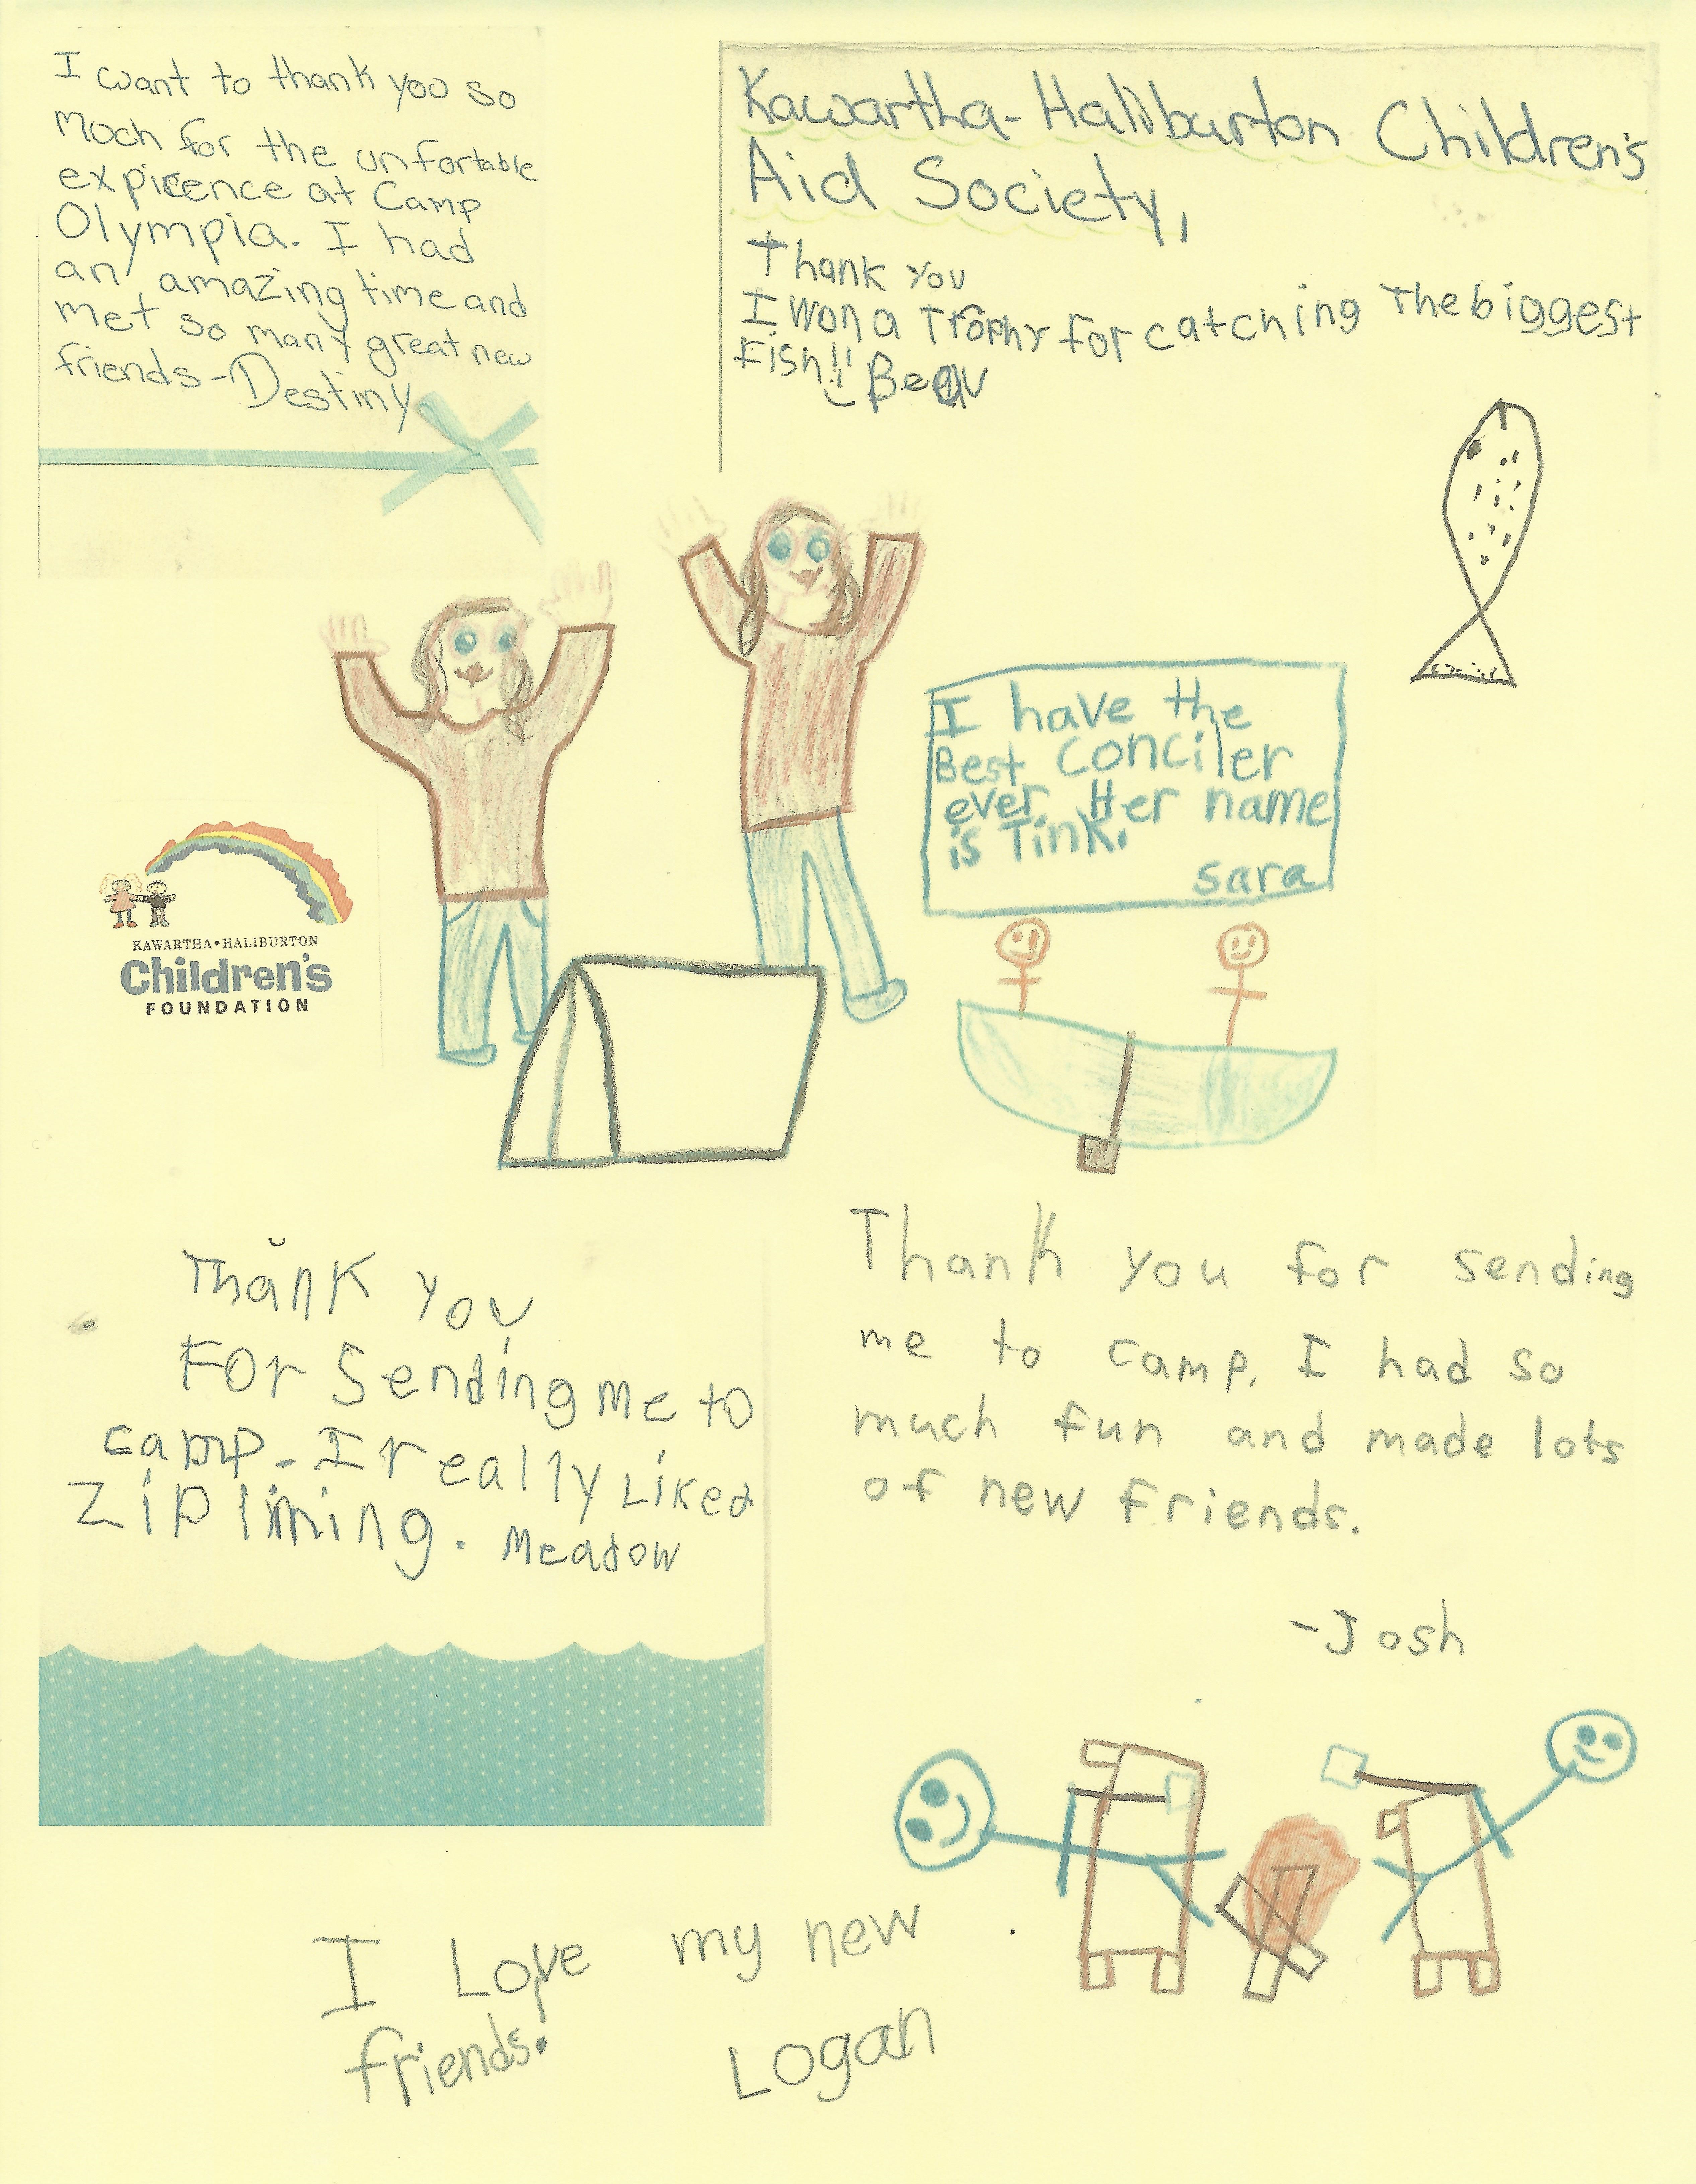 I want to thank you so
much for the unfortable
expirence at Camp
Olympia. I had
an amazing time and
met so many great new
friends-Destiny
Kawartha-Haliburton Children's
Aid Society,
Thank You
I won a Trophy for catching The biggest
Fish!! Beau
I have the
Best Conciler
ever. Her name
is Tink.
sara
KAWARTHA•HALIBURTON
Children's
FOUNDATION
Thank you
For Sending me to
camp. I really Liked
Ziplining. Meadow
Thank you for sending
me to camp. I had so
much fun and made lots
of new friends.
-Josh
I Love my new
friends.
Logan